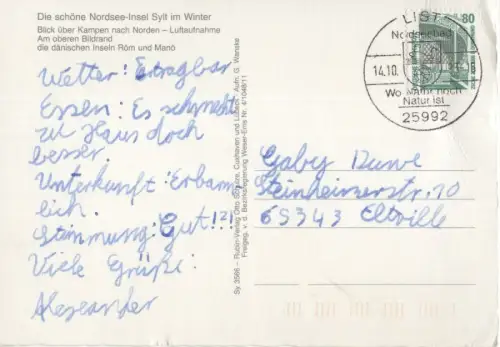 Die schöne Nordsee-Insel Sylt im Winter
Blick über Kampen nach Norden – Luftaufnahme
Am oberen Bildrand
die dänischen Inseln Röm und Manö
Wetter: Ertragbar
Essen: Es schmeckt
zu Haus doch
besser.
Unterkunft: Erbärm
lich.
Stimmung: Gut!?!
Viele Grüße:
Alexander
Sy 3586 – Rubin-Verlag Otto Schulze, Cuxhaven und Lübeck · Aufn. G. Wanske
Freigeg. v. d. Bezirksregierung Weser-Ems Nr. 4/1048/11
LIST
Nordseebad
14.10.
Wo Natur noch
Natur ist
25992
80
Gaby Duwe
Steinheimerstr. 10
65343 Eltville